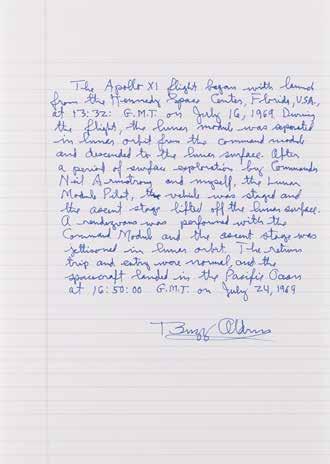 The Apollo XI flight began with launch
from the Kennedy Space Center, Florida, USA.,
at 13:32: G.M.T. on July 16, 1969. During
the flight, the lunar module was separated
in lunar orbit from the command module
and descended to the lunar surface. After
a period of surface exploration by Commander
Neil Armstrong and myself, the Lunar
Module Pilot, the vehicle was staged and
the ascent stage lifted off the lunar surface.
A rendezvous was performed with the
Command Module and the ascent stage was
jettisoned in lunar orbit. The return
trip and entry were normal, and the
spacecraft landed in the Pacific Ocean
at 16:50:00 G.M.T. on July 24, 1969
Buzz Aldrin